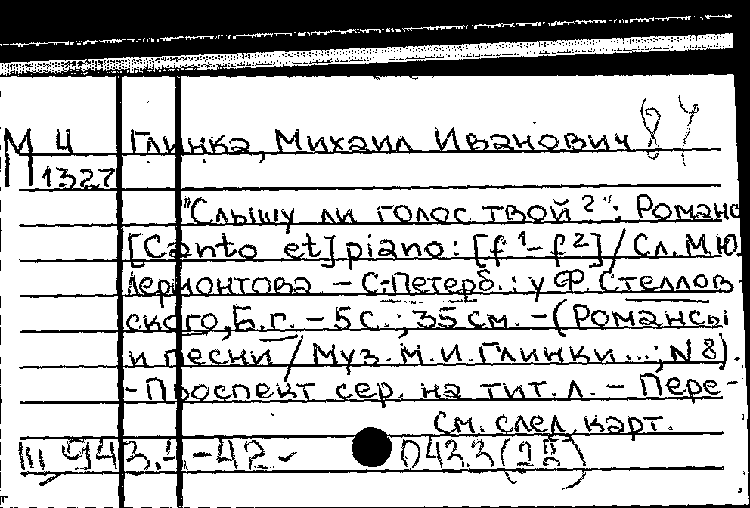 М Ц Глинка, Михаил Иванович 84
П 1327
"Слышу ли голос твой?": Романс
[Canto et] piano: [f¹-f²] / Сл. М.Ю.
Лермонтова. - С.-Петерб.: у Ф. Стеллов-
ского, Б.г. - 5 с.; 35 см. - (Романсы
и песни / Муз. М.И. Глинки...; N 8).
- Проспект сер. на тит. л. - Пере-
См. след. карт.
Ш 943.4-42 0433(28)